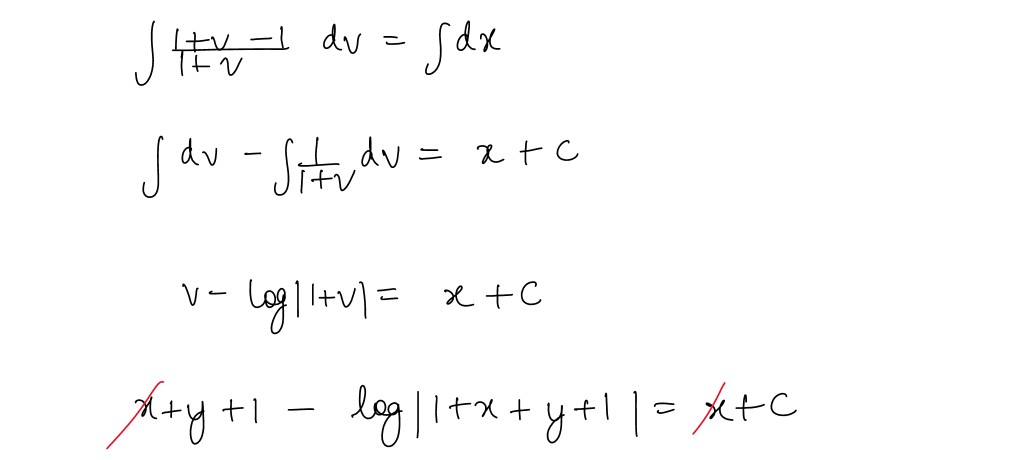 ∫ (1+v-1)/(1+v) dv = ∫dx
∫ dv - ∫ 1/(1+v) dv = x + c
v - log|1+v| = x + c
x+y+1 - log|1+x+y+1| = x+c